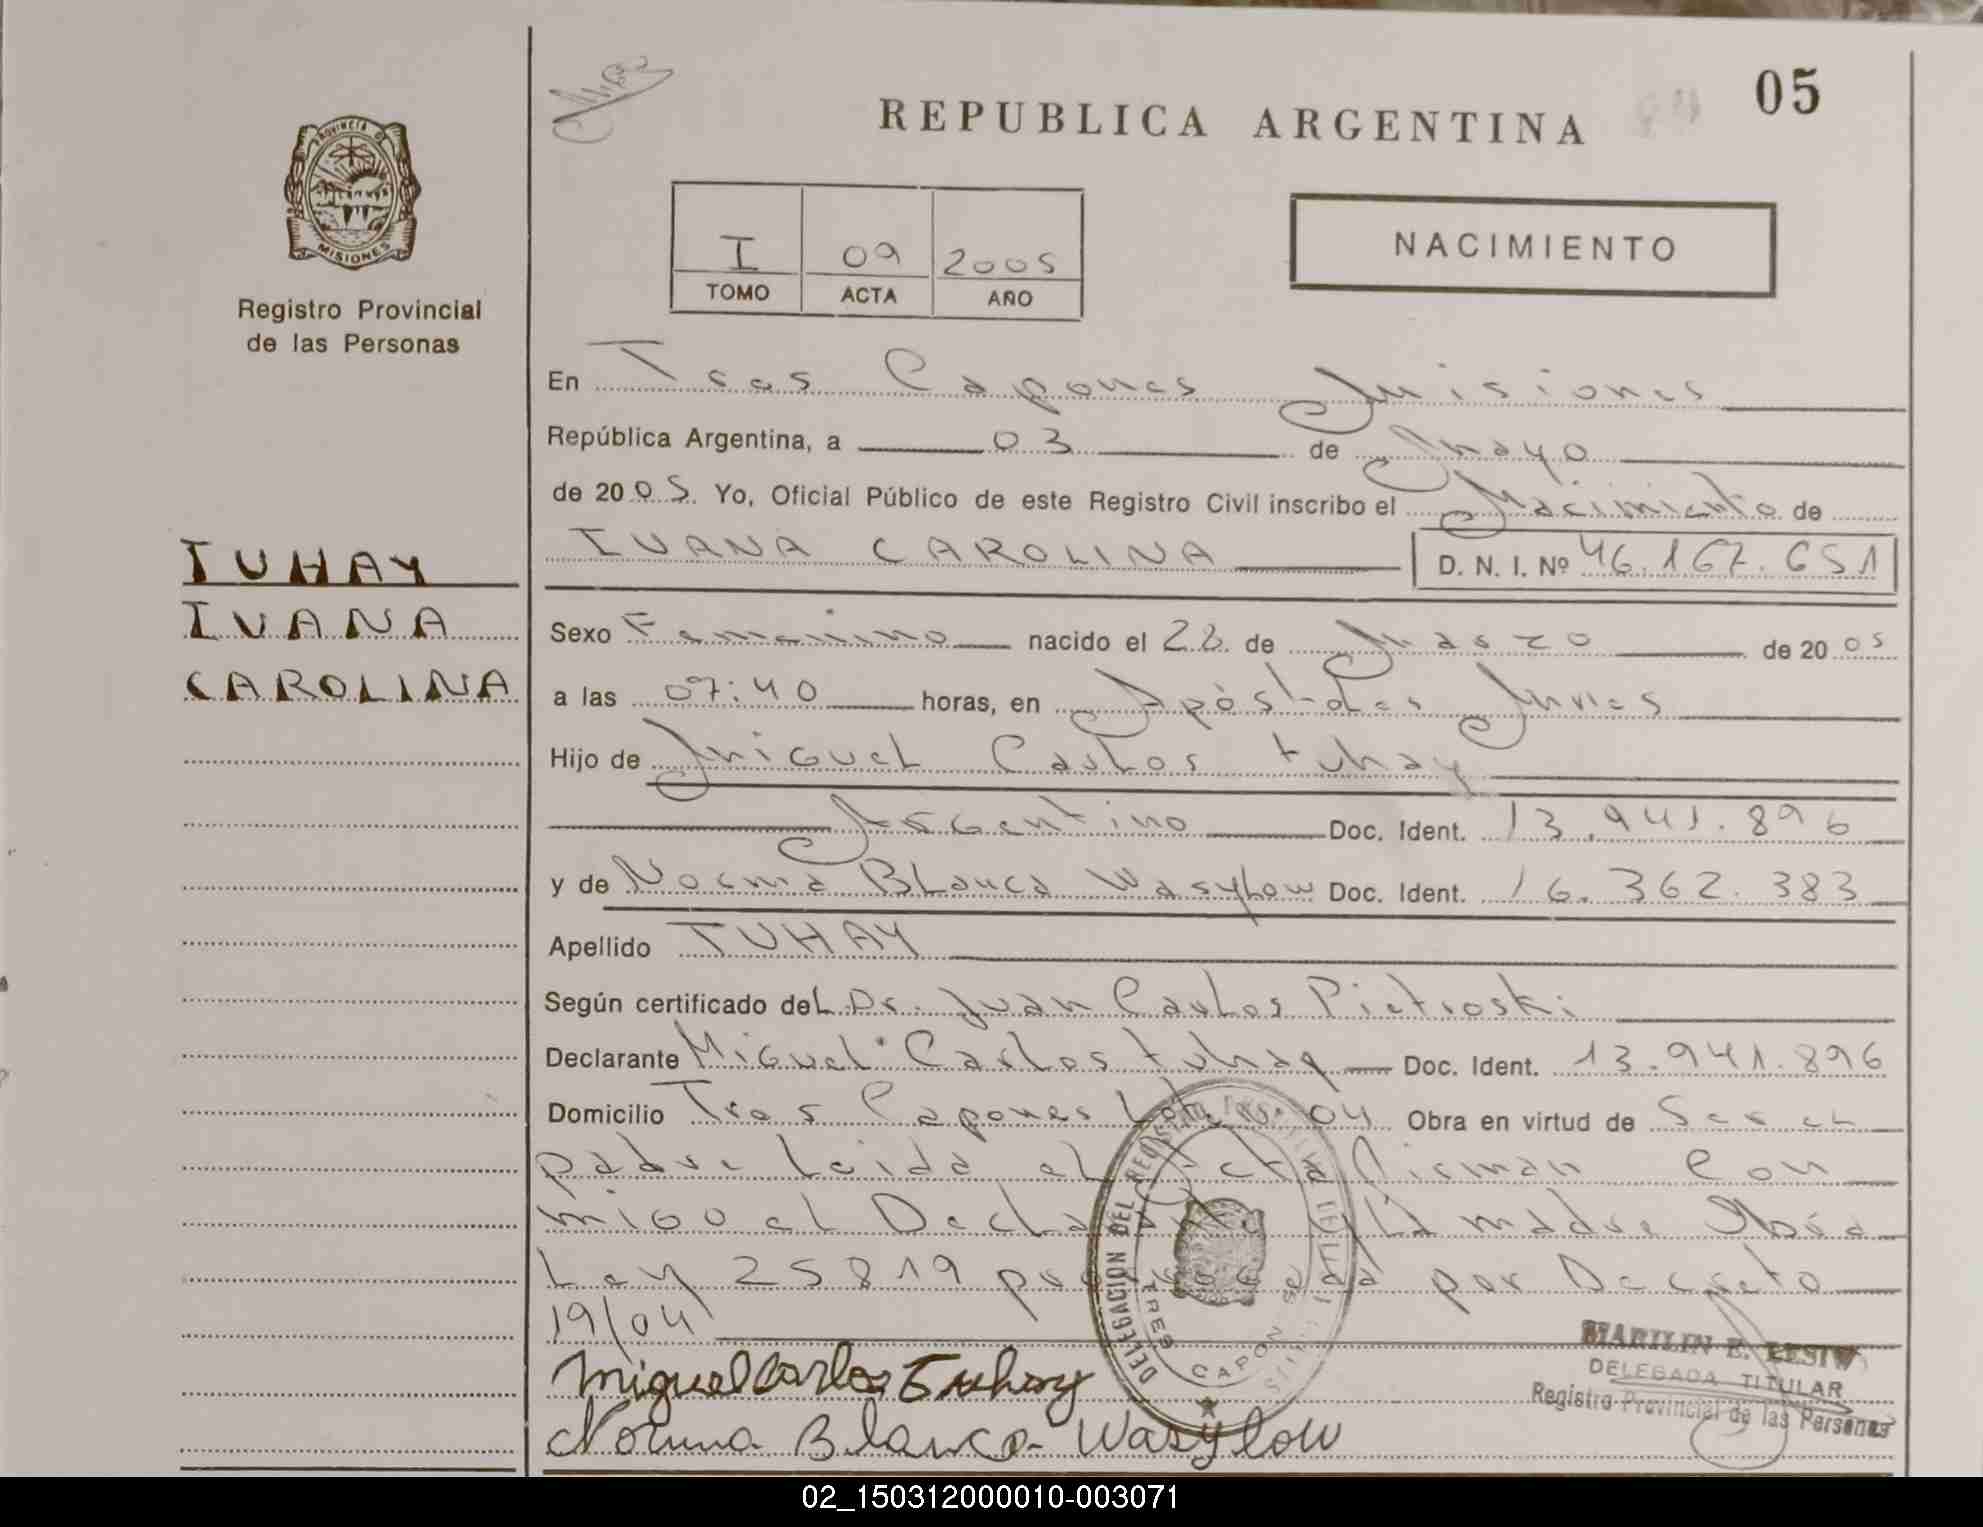 05
REPUBLICA ARGENTINA
PROVINCIA DE
MISIONES
Registro Provincial
de las Personas
I 09 2005
TOMO ACTA AÑO
NACIMIENTO
En Tres Capones Misiones
República Argentina, a 03 de Mayo
de 2005. Yo, Oficial Público de este Registro Civil inscribo el Nacimiento de
IVANA CAROLINA D. N. I. Nº 46.167.651
TUHAY
IVANA
CAROLINA
Sexo Femenino nacido el 28 de Marzo de 2005
a las 07:40 horas, en Apóstoles Mnes
Hijo de Miguel Carlos Tuhay
Argentino Doc. Ident. 13.941.896
y de Norma Blanca Wasylow Doc. Ident. 16.362.383
Apellido TUHAY
Según certificado del Dr. Juan Carlos Pietroski
Declarante Miguel Carlos Tuhay Doc. Ident. 13.941.896
Domicilio Tres Capones Lote 04 Obra en virtud de Ser el
padre Leida el Acta Firman Con
migo el Declarante y la madre
Ley 25819 por Decreto
19/04
Miguel Carlos Tuhay
Norma Blanca Wasylow
DELEGACION DEL REGISTRO
TRES CAPONES
MARILIN E. LESIW
DELEGADA TITULAR
Registro Provincial de las Personas
02_150312000010-003071